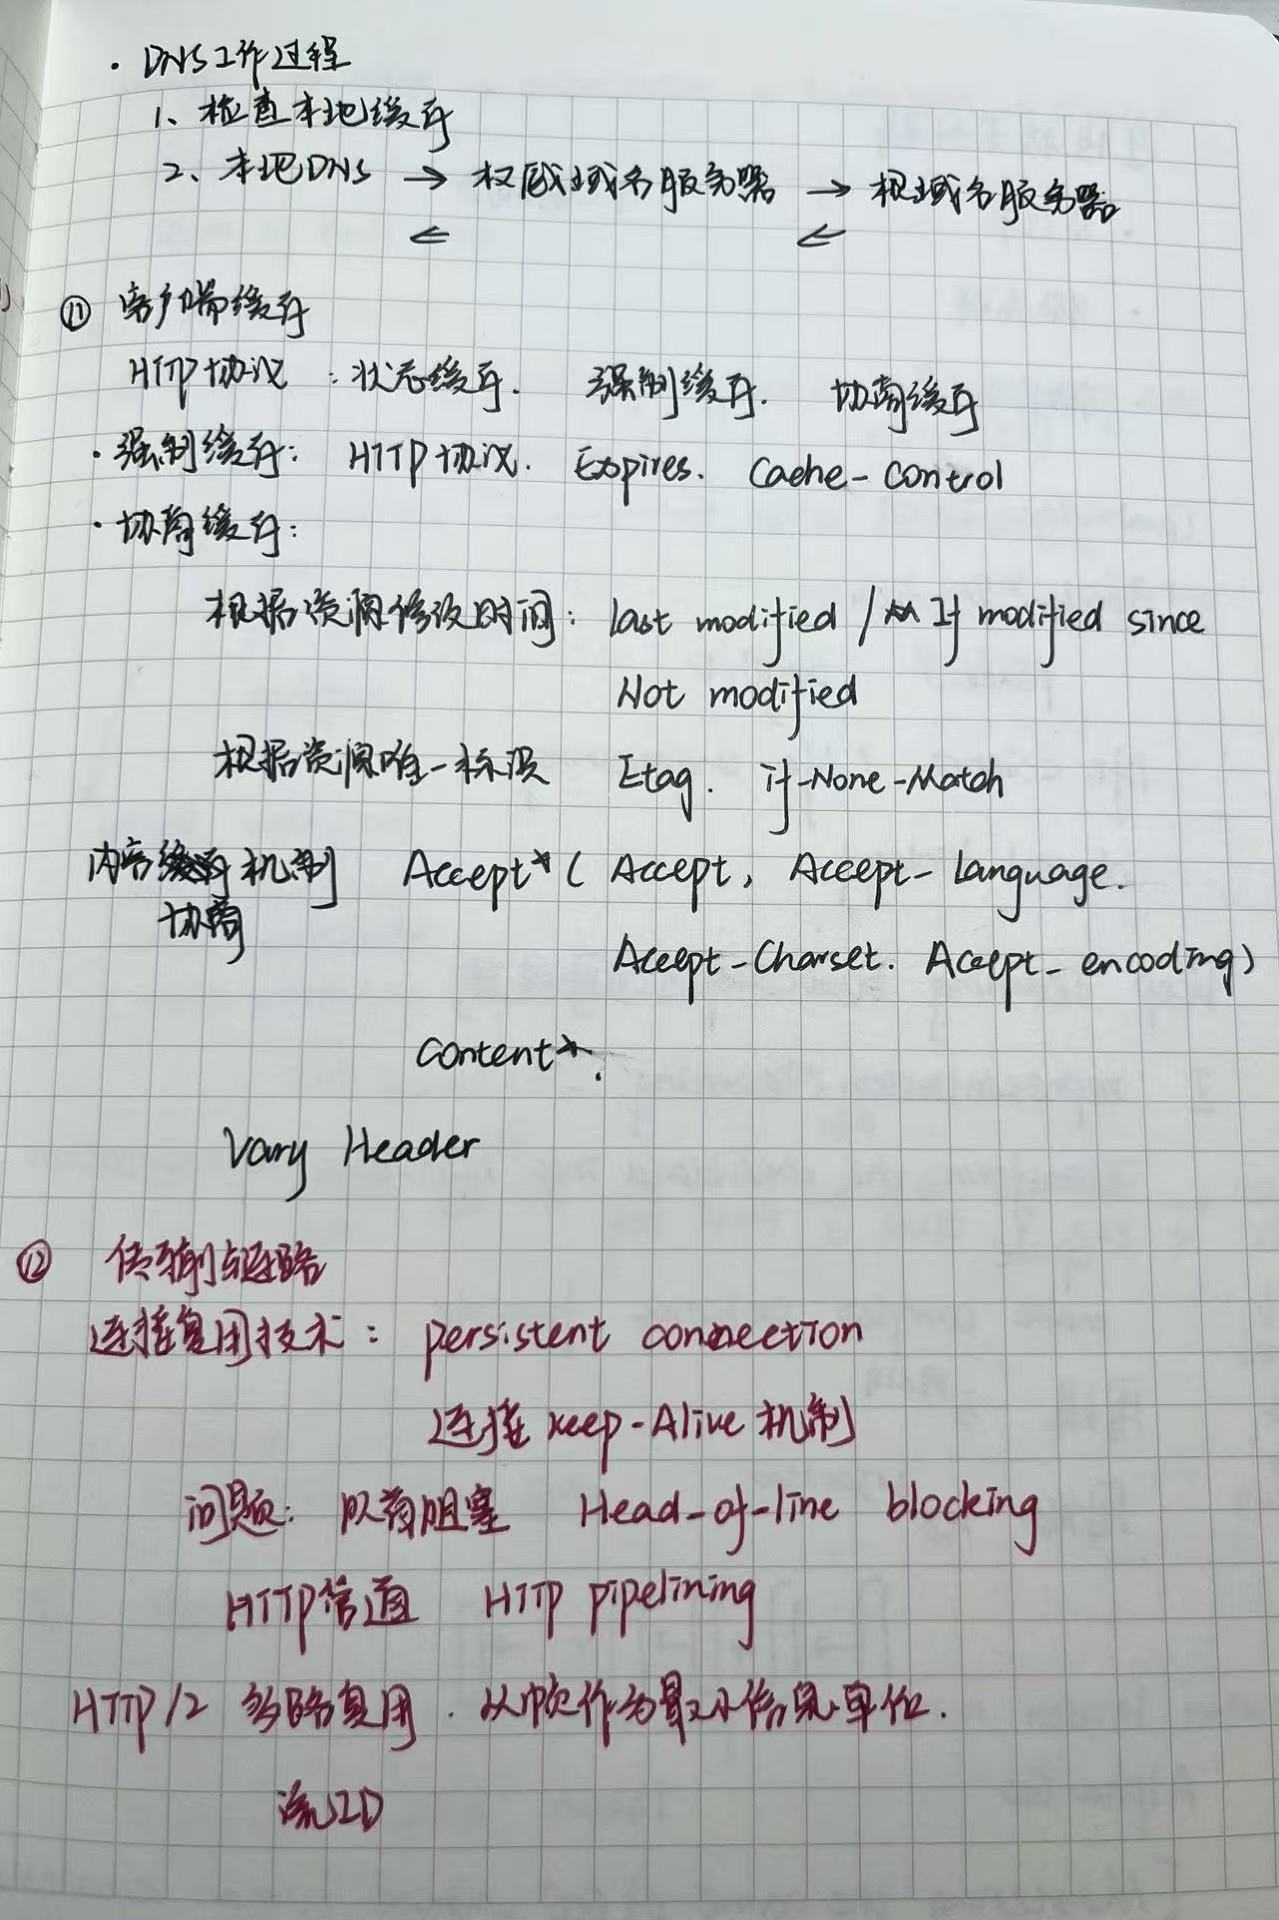 · DNS工作过程
1、检查本地缓存
2、本地DNS → 权威域名服务器 → 根域名服务器
⇐ ⇐
⑪ 客户端缓存
HTTP协议：状态缓存. 强制缓存. 协商缓存
· 强制缓存：HTTP协议. Expires. Cache-control
· 协商缓存：
根据资源修改时间：last modified / If modified since
Not modified
根据资源唯一标识 Etag. if-None-Match
内容机制 Accept* ( Accept, Accept-Language.
协商
Accept-Charset. Accept-encoding)
Content*.
Vary Header
⑫ 传输链路
连接复用技术：persistent connection
连接 keep-Alive 机制
问题：队首阻塞 Head-of-line blocking
HTTP管道 HTTP pipelining
HTTP/2 多路复用. 以帧作为最小信息单位.
流ID